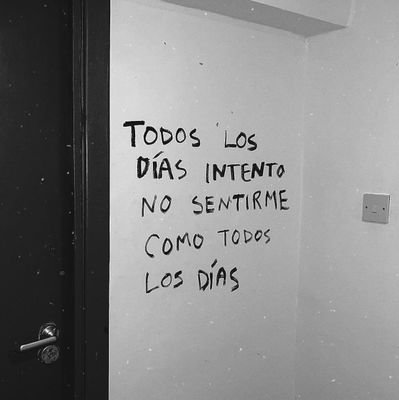 TODOS LOS
DÍAS INTENTO
NO SENTIRME
COMO TODOS
LOS DÍAS